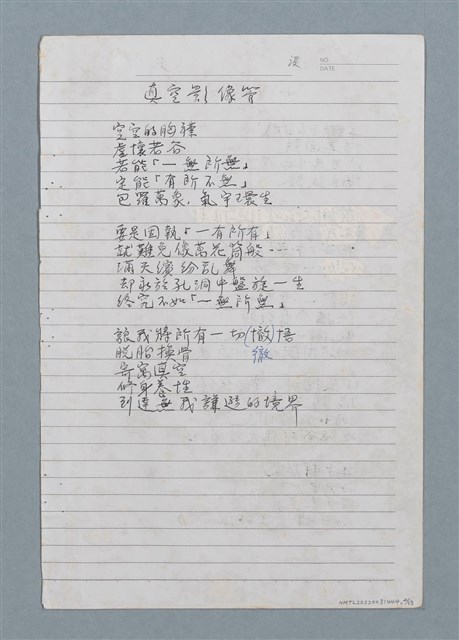 NO.
DATE
真空影像管
空空的胸襟
虛懷若谷
若能「一無所無」
定能「有所不無」
包羅萬象，氣宇叢生
要是固執「一有所有」
就難免像萬花筒般…
滿天繽紛乱舞
却永於孔洞中盤旋一生
終究不如「一無所無」
讓我將所有一切(撤)悟
徹
脫胎換骨
寄寓真空
修身養性
到達無我謙遜的境界